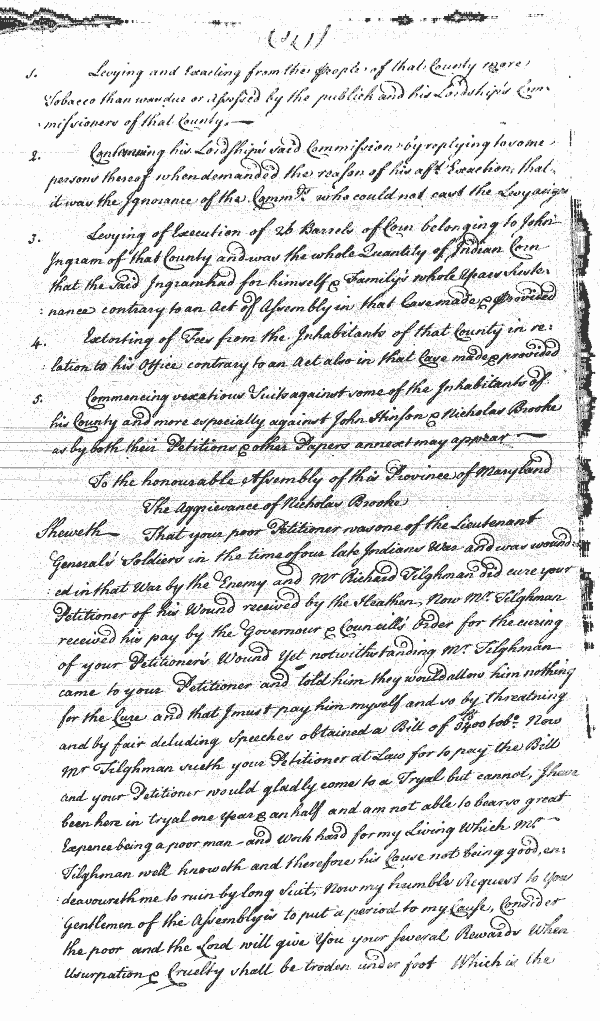 (321)
1. Levying and Exacting from the people of that County more
Tobacco than was due or Assessed by the publick and his Lordship's Com-
missioners of that County.
2. Contemning his Lordship's said Commission by replying to some
persons thereof when demanded the reason of his afd Exaction, that
it was the Ignorance of the Commrs. who could not cast the Levy aright
3. Levying of Execution of 26 Barrels of Corn belonging to John
Ingram of that County and was the whole Quantity of Indian Corn
that the said Ingram had for himself & Family's whole Years Suste-
:nance contrary to an Act of Assembly in that Case made & provided
4. Extorting of Fees from the Inhabitants of that County in re:
lation to his Office contrary to an Act also in that Case made & provided
5. Commencing vexatious Suits against some of the Inhabitants of
his County and more especially against John Hinson & Nicholas Brooke
as by both their Petitions & other Papers annext may appear
To the honourable Assembly of this Province of Maryland
The Aggrievance of Nicholas Brooke
Sheweth That your poor Petitioner was one of the Lieutenant
Generals Soldiers in the time of our late Indians War and was wound:
:ed in that War by the Enemy and Mr Richard Tilghman did cure your
Petitioner of his Wound received by the Heathen, Now Mr. Tilghman
received his pay by the Governour & Councills Order for the cureing
of your Petitioner's Wound Yet notwithstanding Mr. Tilghman
came to your Petitioner and told him they would allow him nothing
for the Cure and that I must pay him myself and so by threatning
and by fair deluding Speeches obtained a Bill of tobo. Now
Mr Tilghman sueth your Petitioner at Law for to pay the Bill
and your Petitioner would gladly come to a Tryal but cannot, I have
been here in tryal one Year & an half and am not able to bear so great
Expence being a poor man and work hard for my Living Which Mr.
Tilghman well knoweth and therefore his Cause not being good, en:
deavoureth me to ruin by long Suit, Now my humble Request to You
Gentlemen of the Assembly is to put a period to my Cause, Consider
the poor and the Lord will give You your several Rewards When
Usurpation & Cruelty shall be troden under foot Which is the